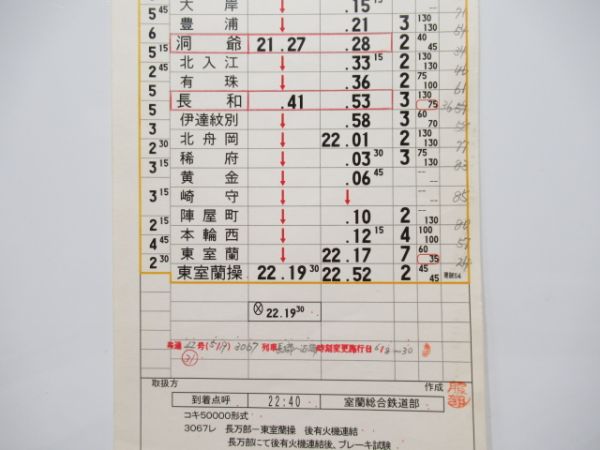 大岸 ↓ .15 15
5 45 豊浦 ↓ .21 3 130 130
6 洞爺 21.27 .28 2 40 45
5 15 北入江 ↓ .33 15 2 130 130
2 45 有珠 ↓ .36 2 75 100
5 長和 .41 .53 3 130 75
5 伊達紋別 ↓ .58 3 60 70
3 北舟岡 ↓ 22.01 2 130 130
2 30 稀府 ↓ .03 30 3 75 130
3 黄金 ↓ .06 45
崎守 ↓ ↓
3 15 陣屋町 ↓ .10 2 130
2 15 本輪西 ↓ .12 15 4 100 100
4 45 東室蘭 ↓ 22.17 7 60 35
2 30 東室蘭操 22.19 30 22.52 2 45 45
Ⓧ 22.19 30
3067 列車 時刻変更施行日
取扱方 作成
到着点呼 22:40 室蘭総合鉄道部
コキ50000形式
3067レ 長万部ー東室蘭操 後有火機連結
長万部にて後有火機連結後、ブレーキ試験